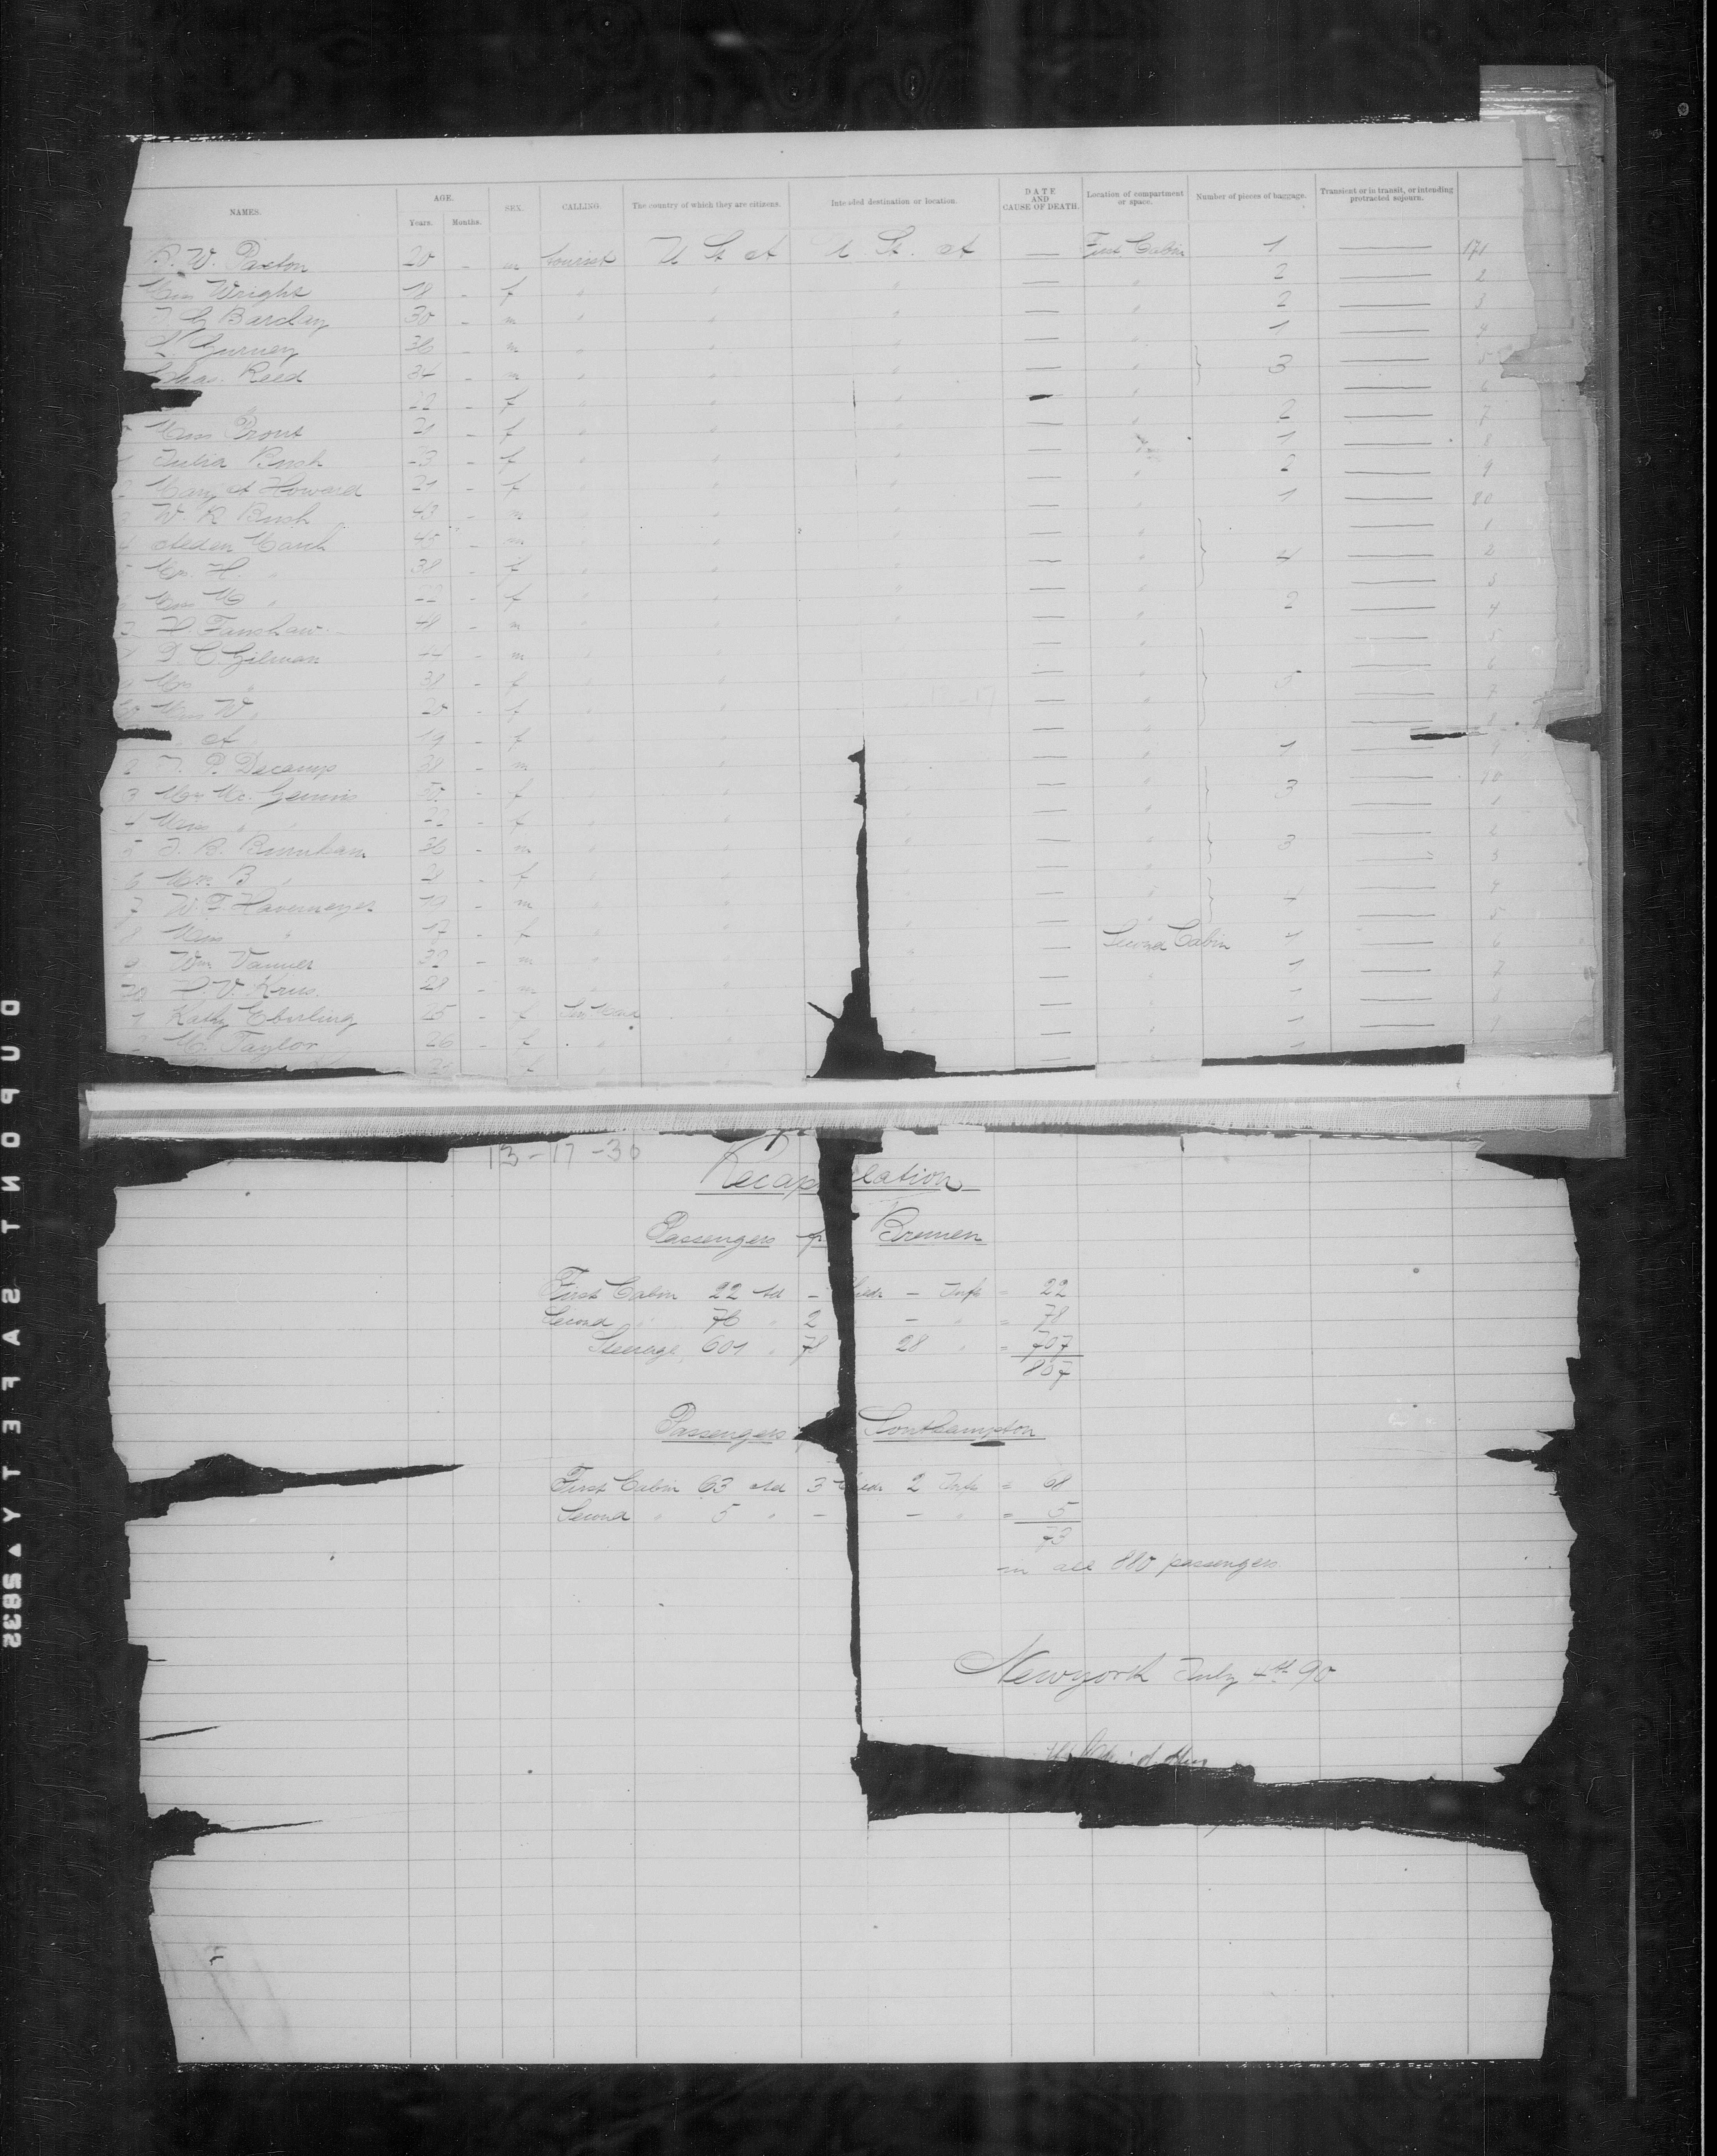 NAMES. AGE. Years. Months. SEX. CALLING. The country of which they are citizens. Intended destination or location. DATE AND CAUSE OF DEATH. Location of compartment or space. Number of pieces of baggage. Transient or in transit, or intending protracted sojourn.
W. Paxton 20 - m tourist U St. A U. St. A — First Cabin 1 — 171
Miss Wright 18 - f " " " — " 2 — 2
G Barclay 30 - m " " " — " 2 — 3
Gurney 36 - m " " " — " 1 — 4
Chas. Reed 34 - m " " " — " 3 — 5
22 - f " " " — " — 6
Miss Prout 21 - f " " " — " 2 — 7
Julia Bush - f " " " — 1 — 8
Mary A Howard 21 - f " " " — " 2 — 9
W. R Bush 43 - m " " " — " 1 — 80
Alden March 45 - m " " " — " — 1
Mrs. H. " 38 - f " " " — " 4 — 2
Miss M " 22 - f " " " — " — 3
Fanshaw 48 - m " " " — " 2 — 4
D. C. Gilman 44 - m " " — " — 5
Mrs " 38 - f " " — " 5 — 6
Miss W " 20 - f " " — " — 7
" A 19 - f " " — " — 8
P. Decamp 38 - m " " — " 1 — 9
3 Mrs Mc. - f " " — " 3 — 10
4 Miss " " 22 - f " " — " — 1
5 J. B. Burnham 36 - m " " " — " 3 — 2
6 Mrs. B " - f " " — " — 3
7 W. F. Havemeyer - m " " " — " 4 — 4
8 Miss " 17 - f " " " — " — 5
9 Wm Vanner 32 - m " " " — Second Cabin 1 — 6
V. Krus. 28 - m " " — " 1 — 7
1 Kathy Eberling 25 - f " " — " 1 — 8
M. Taylor 26 - f " " " — " 1 —
13-17-30
Recap lation
Passengers f Bremen
First Cabin 22 Ad - - Infs = 22
Second " 76 " 2 - " = 78
Steerage 601 " 78 28 " = 707
807
Passengers Southampton
First Cabin 63 Ad 3 2 Infs = 68
Second " 5 " - - " = 5
73
in all 880 passengers
Newyork July 4th 90
DUPONT SAFETY ▲ 2385